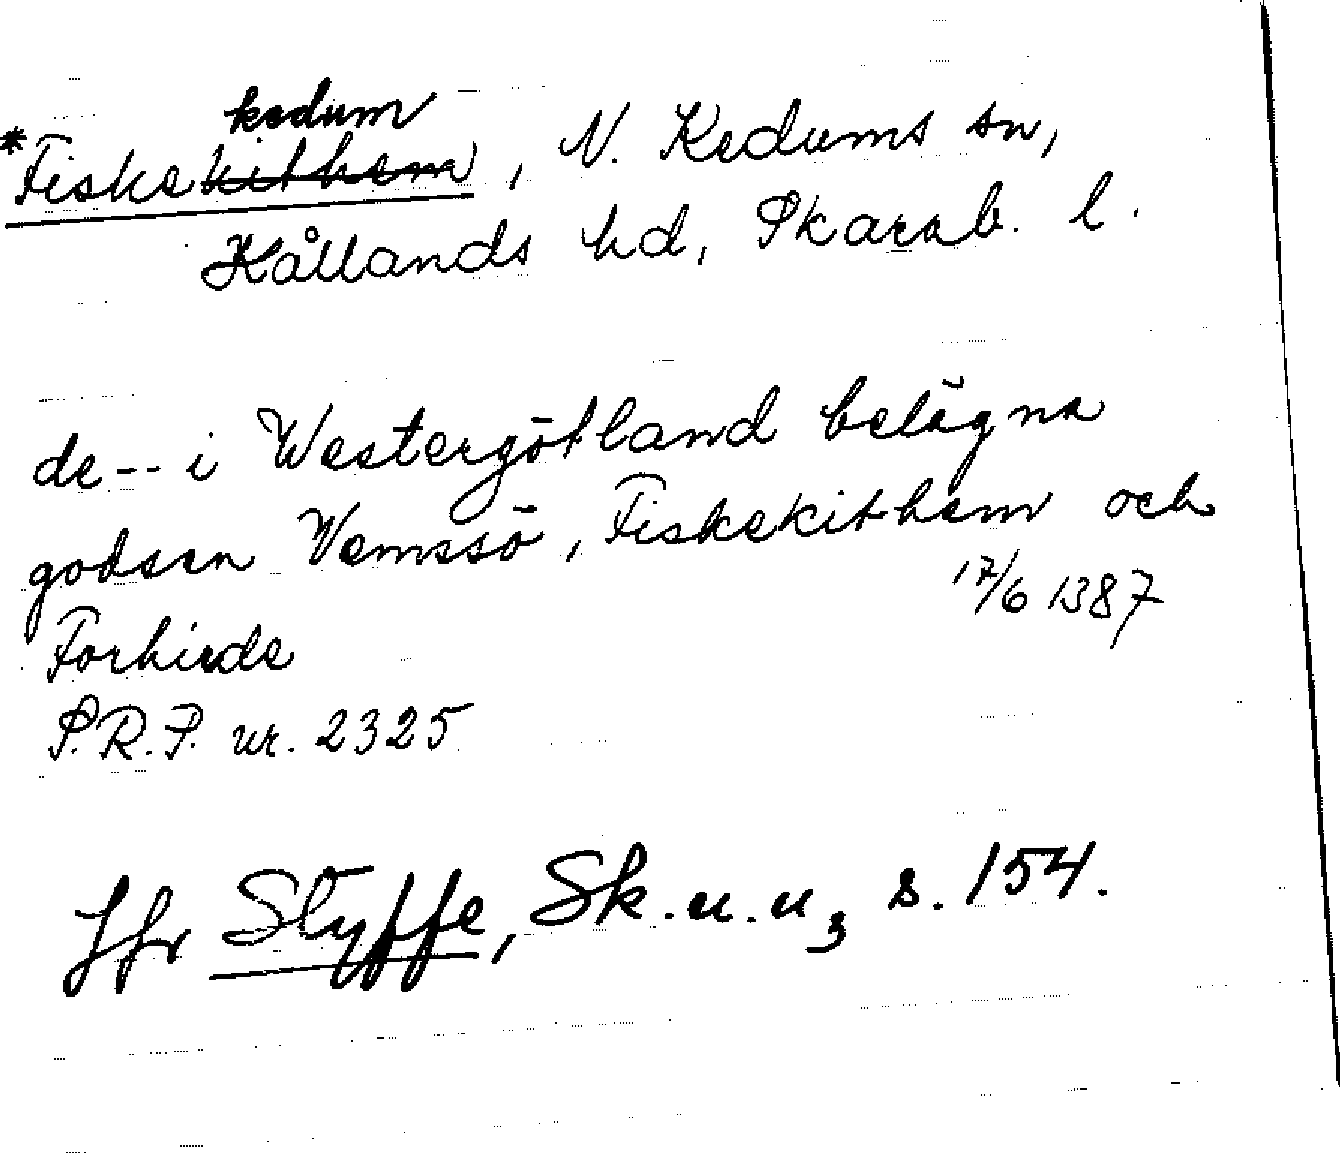 kedum
*Fiskekithem, N. Kedums sn,
Kållands hd, Skarab. l.
de--i Westergötland belägna
godsen Vemssö, Fiskekithem och
17/6 1387
Forhirde
P.R.P. nr. 2325
Jfr Styffe, Sk.u.u, s. 154.